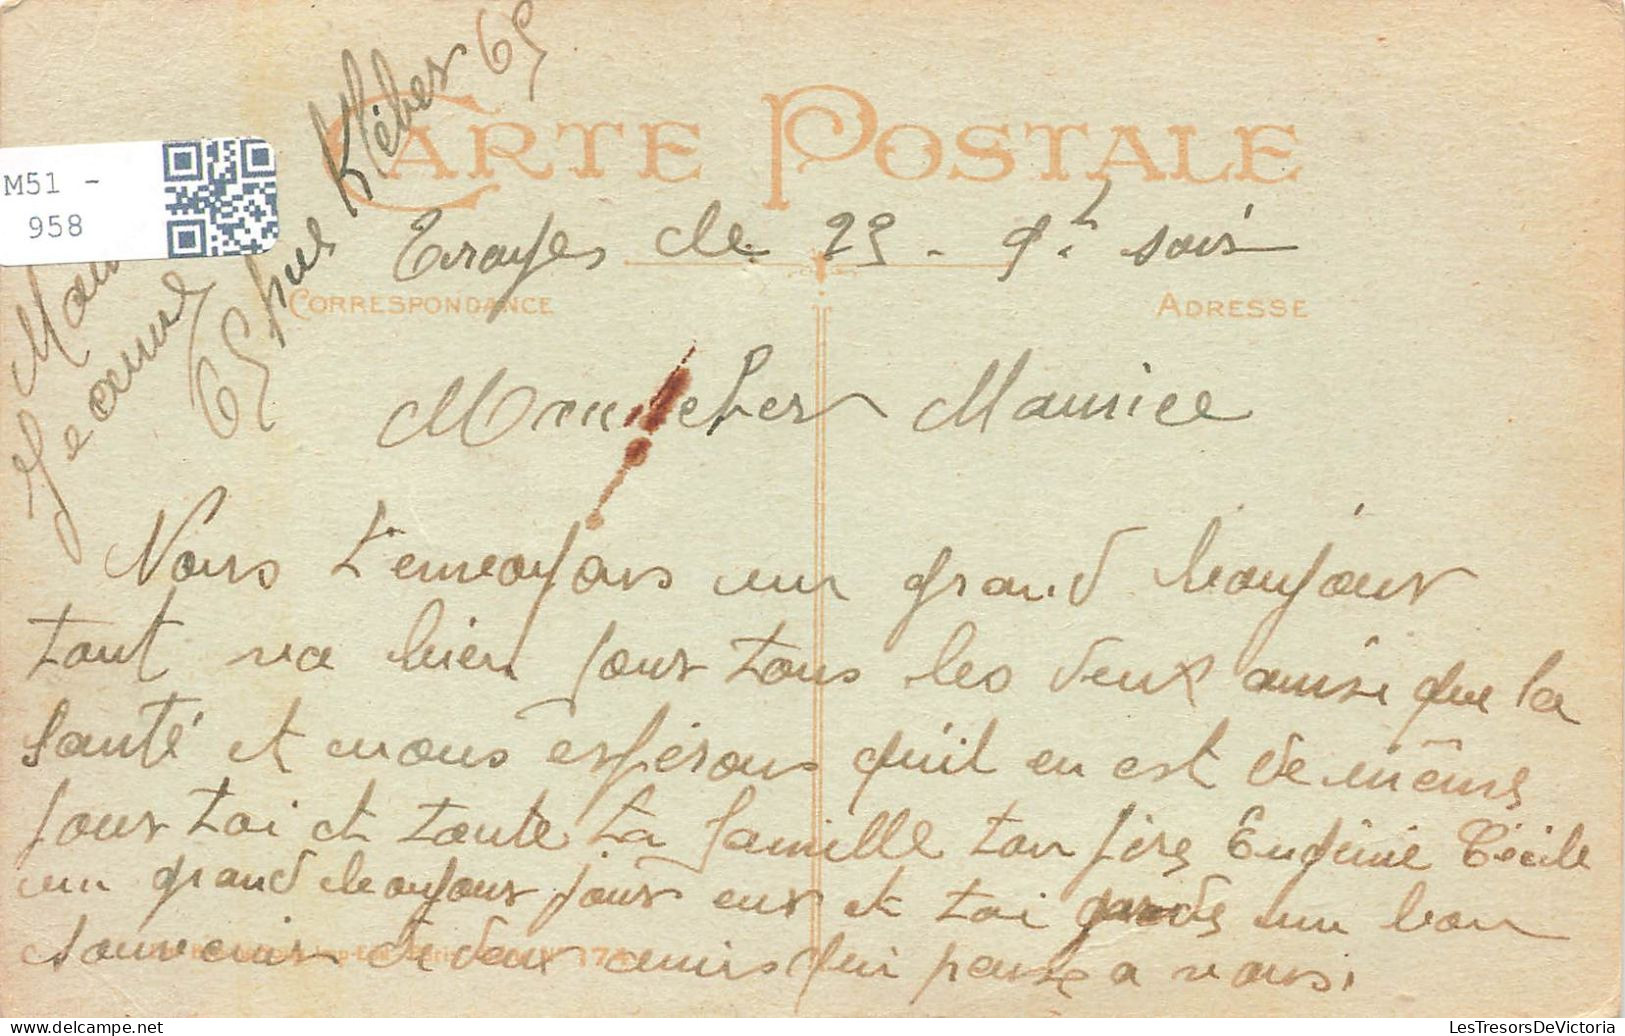 M51 -
958
CARTE POSTALE
Troyes le 29 - 9t soir
CORRESPONDANCE
ADRESSE
Jeanne
65 rue Kléber 65
Mon cher Maurice
Nous t'envoyons un grand bonjour
tout va bien pour tous les deux ainsi que la
santé et nous espérons qu'il en est de même
pour toi et toute ta famille ton père Eugénie Cécile
un grand bonjour pour eux et toi garde un bon
souvenir de deux amis qui pense a vous.
LesTresorsDeVictoria
https://www.delcampe.net